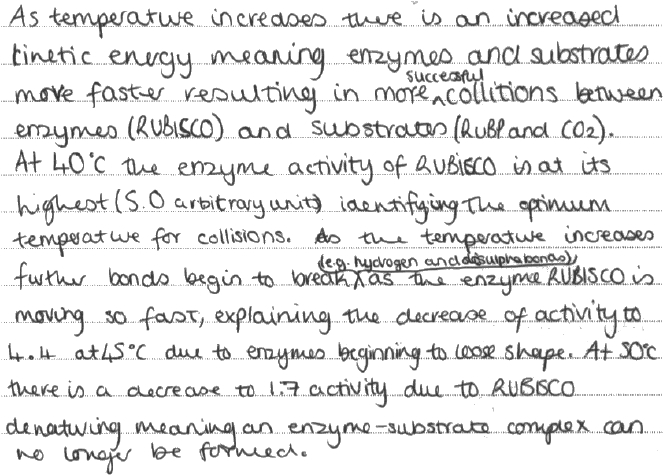 As temperature increases there is an increased
kinetic energy meaning enzymes and substrates
move faster resulting in more successful collitions between
enzymes (RUBISCO) and substrates (RuBP and CO2).
At 40°C the enzyme activity of RUBISCO is at its
highest (5.0 arbitrary units) identifying the optimum
temperature for collisions. As the temperature increases
further bonds begin to break (e.g. hydrogen and disulpha bonds) as the enzyme RUBISCO is
moving so fast, explaining the decrease of activity to
4.4 at 45°C due to enzymes beginning to loose shape. At 50°C
there is a decrease to 1.7 activity due to RUBISCO
denaturing meaning an enzyme-substrate complex can
no longer be formed.